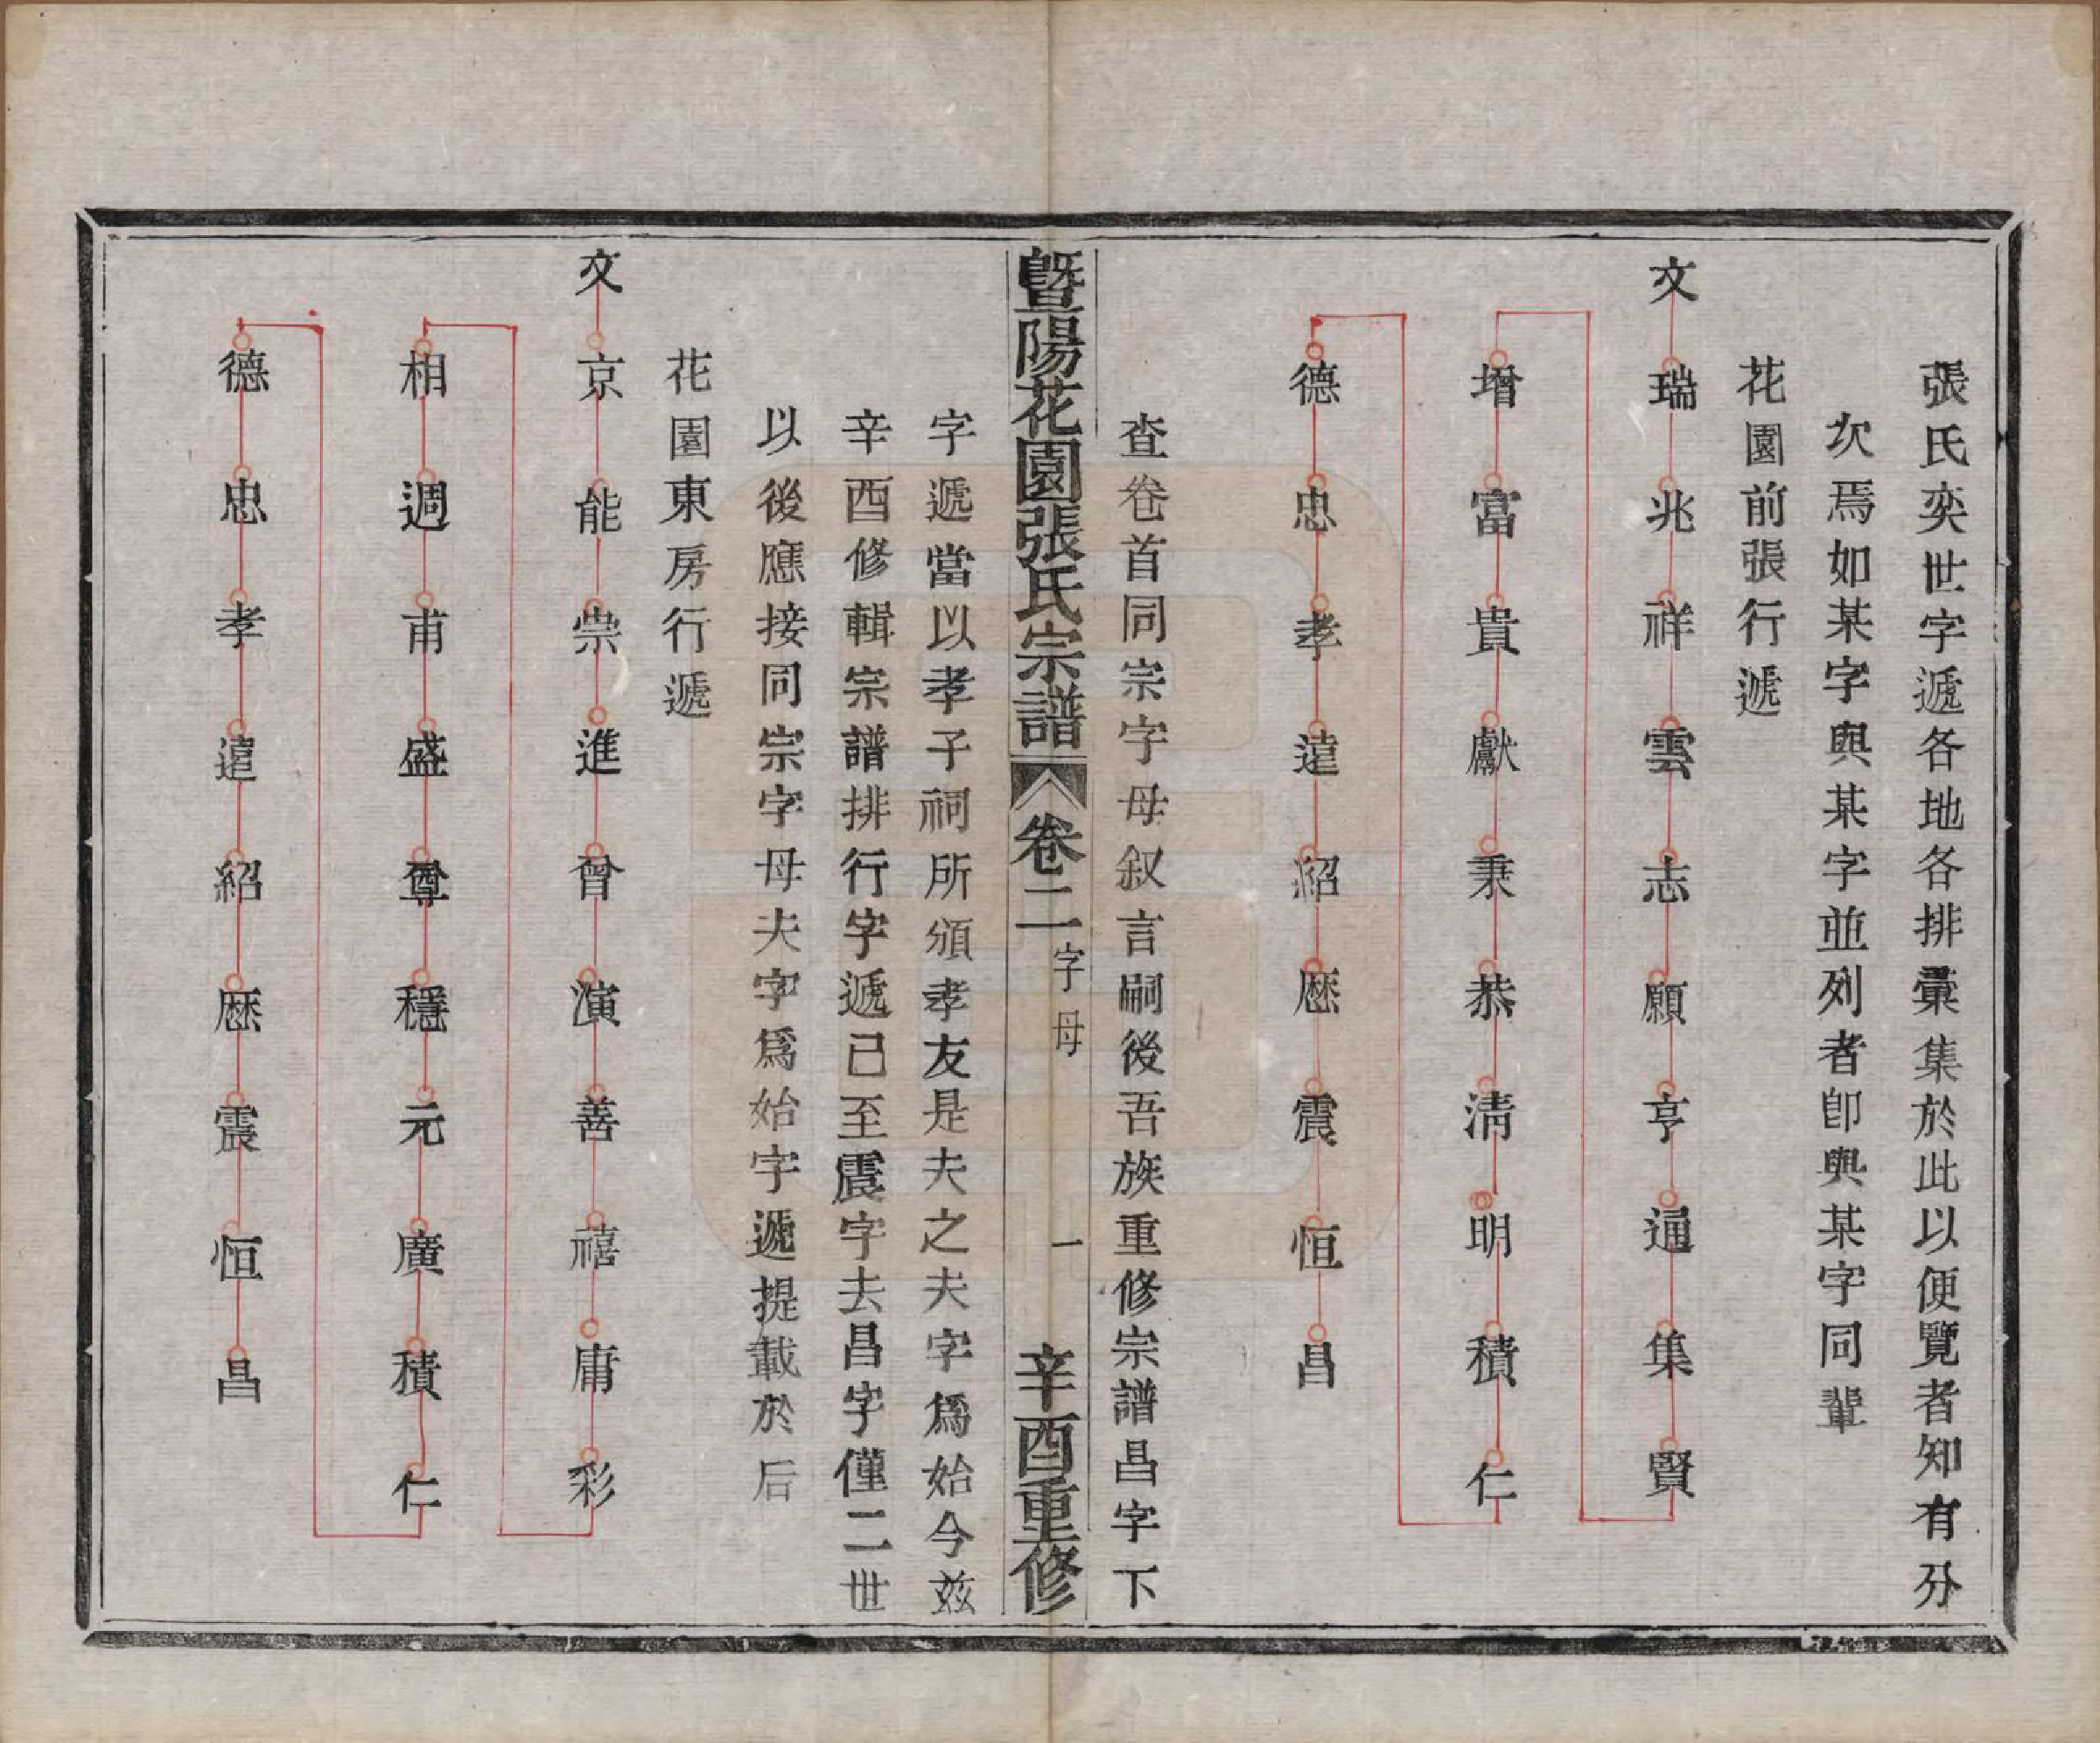 張氏奕世字遞各地各排彙集於此以便覽者知有分
次焉如某字與某字並列者卽與某字同輩
花園前張行遞
文瑞兆祥雲志願亨通集賢
增富貴獻秉恭淸明積仁
德忠孝遠紹歷震恒昌
查卷首同宗字母叙言嗣後吾族重修宗譜昌字下
曁陽花園張氏宗譜 卷二 字母 一 辛酉重修
字遞當以孝子祠所頒孝友是夫之夫字爲始今兹
辛酉修輯宗譜排行字遞己至震字去昌字僅二世
以後應接同宗字母夫字爲始字遞提載於后
花園東房行遞
文京能崇進曾演善禧庸彩
相週甫盛尊穩元廣積仁
德忠孝遠紹歷震恒昌